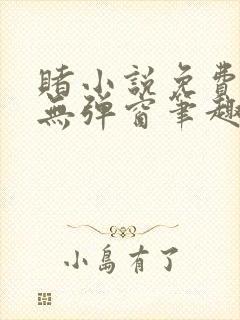 賭小說免費
無彈窗筆趣
小島有了